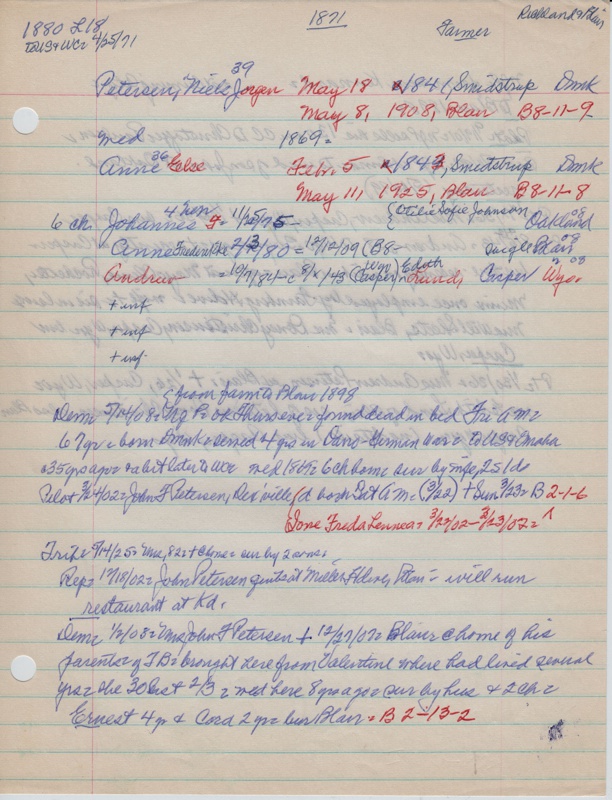 1880 L18 1871 Farmer
to US & WC 4/25/71
39
Petersen, Niels Jorgen May 18 x 1841, Smidstrup Dmk
May 8, 1908, Blair B8-11-9
med 1869=
Anne 36 Else Feb. 5 x 1843, Smidstrup Dmk
May 11, 1925, Blair B8-11-8
6 ch. Johannes F = 11/25/75 Otilie Sofie Johnson Oakland
Anne Frederikke 2/3/80 = 12/12/09 (B8- single Blair
Andrew = 10/7/84 - c 8/x/43 (Casper) Edith Lund, Casper Wyo
+ inf
+ inf
+ inf
from farm to Blair 1898
Dem= 5/14/08= ok Thurs eve = found dead in bed Fri AM=
67 yr = born Dmk = served 4 yrs in Dano-German War = to US & Omaha
35 yrs ago = a bit later to WC wed 1869= 6 ch home sur by wife, 2 S 1 d
Pilot 3/4/02= John F Petersen, (d born Sat AM= (3/22) + Sun 3/23= B 2-1-6
Ione Freda Lennea= 3/22/02 - 3/23/02= ^
Trib= 5/14/25= Mrs, 82= + home = sur by 2 sons=
Rep= 12/18/02= John Petersen quits at = will run
restaurant at Kd.
Dem= 1/2/08= Mrs John F Petersen + 12/27/07= Blair = home of his
parents = of TB = brought here from Valentine where had lived several
yrs = she 30 last 2/3 = wed here 8 yrs ago = sur by hus & 2 ch=
Ernest 4 yr & Cora 2 yr = bur Blair = B 2-13-2